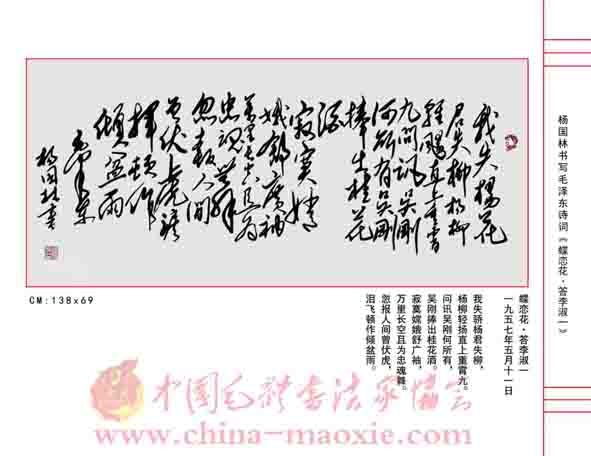 杨国林书写毛泽东诗词《蝶恋花·答李淑一》
我失楊花
君失柳楊柳
輕颺直上重霄
九問訊吳剛
何所有吳剛
捧出桂花
酒
寂寞嫦
娥舒廣袖
萬里長空且為
忠魂舞
忽報人間
曾伏虎淚
揮頓作
傾盆雨
毛澤東
楊國林書
CM:138x69
蝶恋花·答李淑一
一九五七年五月十一日
我失骄杨君失柳，
杨柳轻扬直上重霄九。
问讯吴刚何所有，
吴刚捧出桂花酒。
寂寞嫦娥舒广袖，
万里长空且为忠魂舞。
忽报人间曾伏虎，
泪飞顿作倾盆雨。
中国毛体书法家协会
www.china-maoxie.com